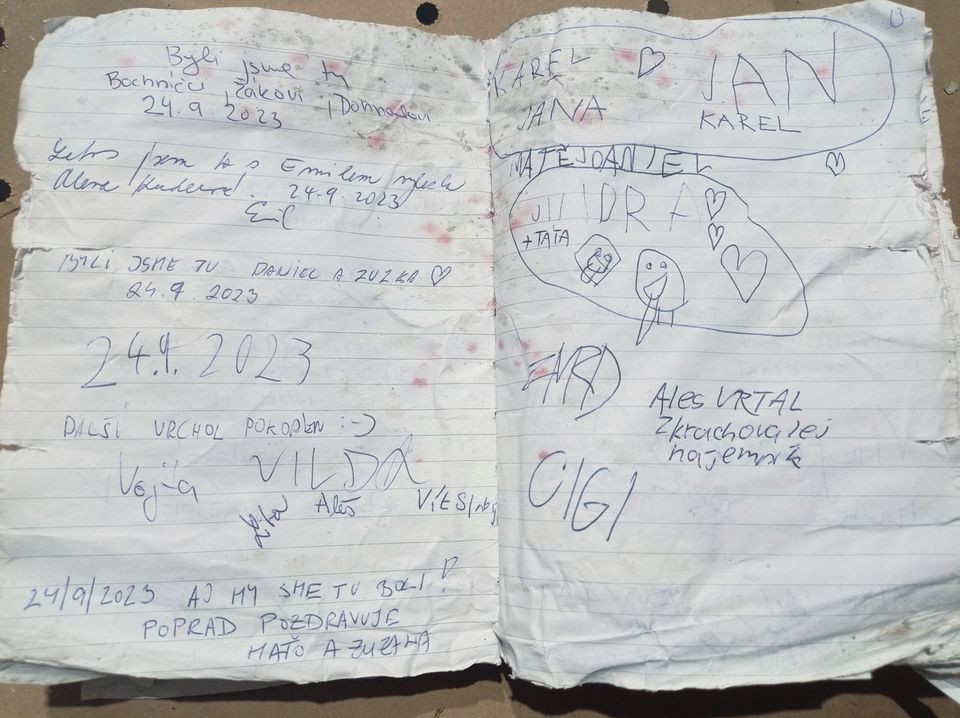 Byli jsme tu
Bochníčci Žákovi i
24.9.2023
jsem to s Emilem
Alena 24.9.2023
Emil
BYLI JSME TU DANIEL A ZUZKA ♡
24.9.2023
24.9.2023
DALŠÍ VRCHOL POKOŘEN :-)
Vojta VILDA
Aleš
24/9/2023 AJ MY SME TU BOLI!
POPRAD POZDRAVUJE
MAŤO A ZUZANA
13
KAREL ♡ JAN
JANA KAREL
MATĚJ DANIEL
JINDRA
+ TAŤA
Ales VRTAL
Zkrachovalej
nájemník
CIGI